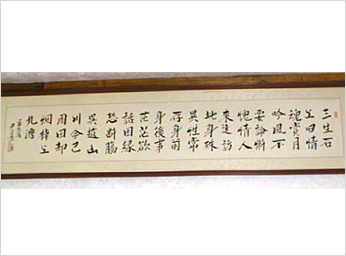 三生石
上旧情
魂賞月
吟風不
要論慚
愧情人
來遠訪
此身殊
異性常
存身前
身後事
茫茫欲
話因緣
恐斷腸
吳越山
川今已
周回却
烟棹上